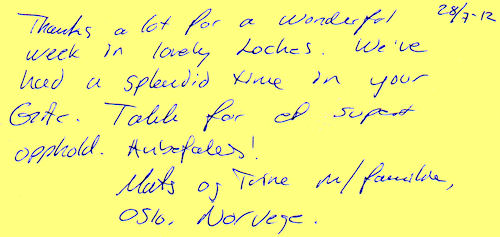 28/7-12
Thanks a lot for a wonderful
week in lovely Loches. We've
had a splendid time in your
Gite. Takk for et supert
opphold. Anbefales!
Mats og Trine m/familie,
Oslo, Norvege.